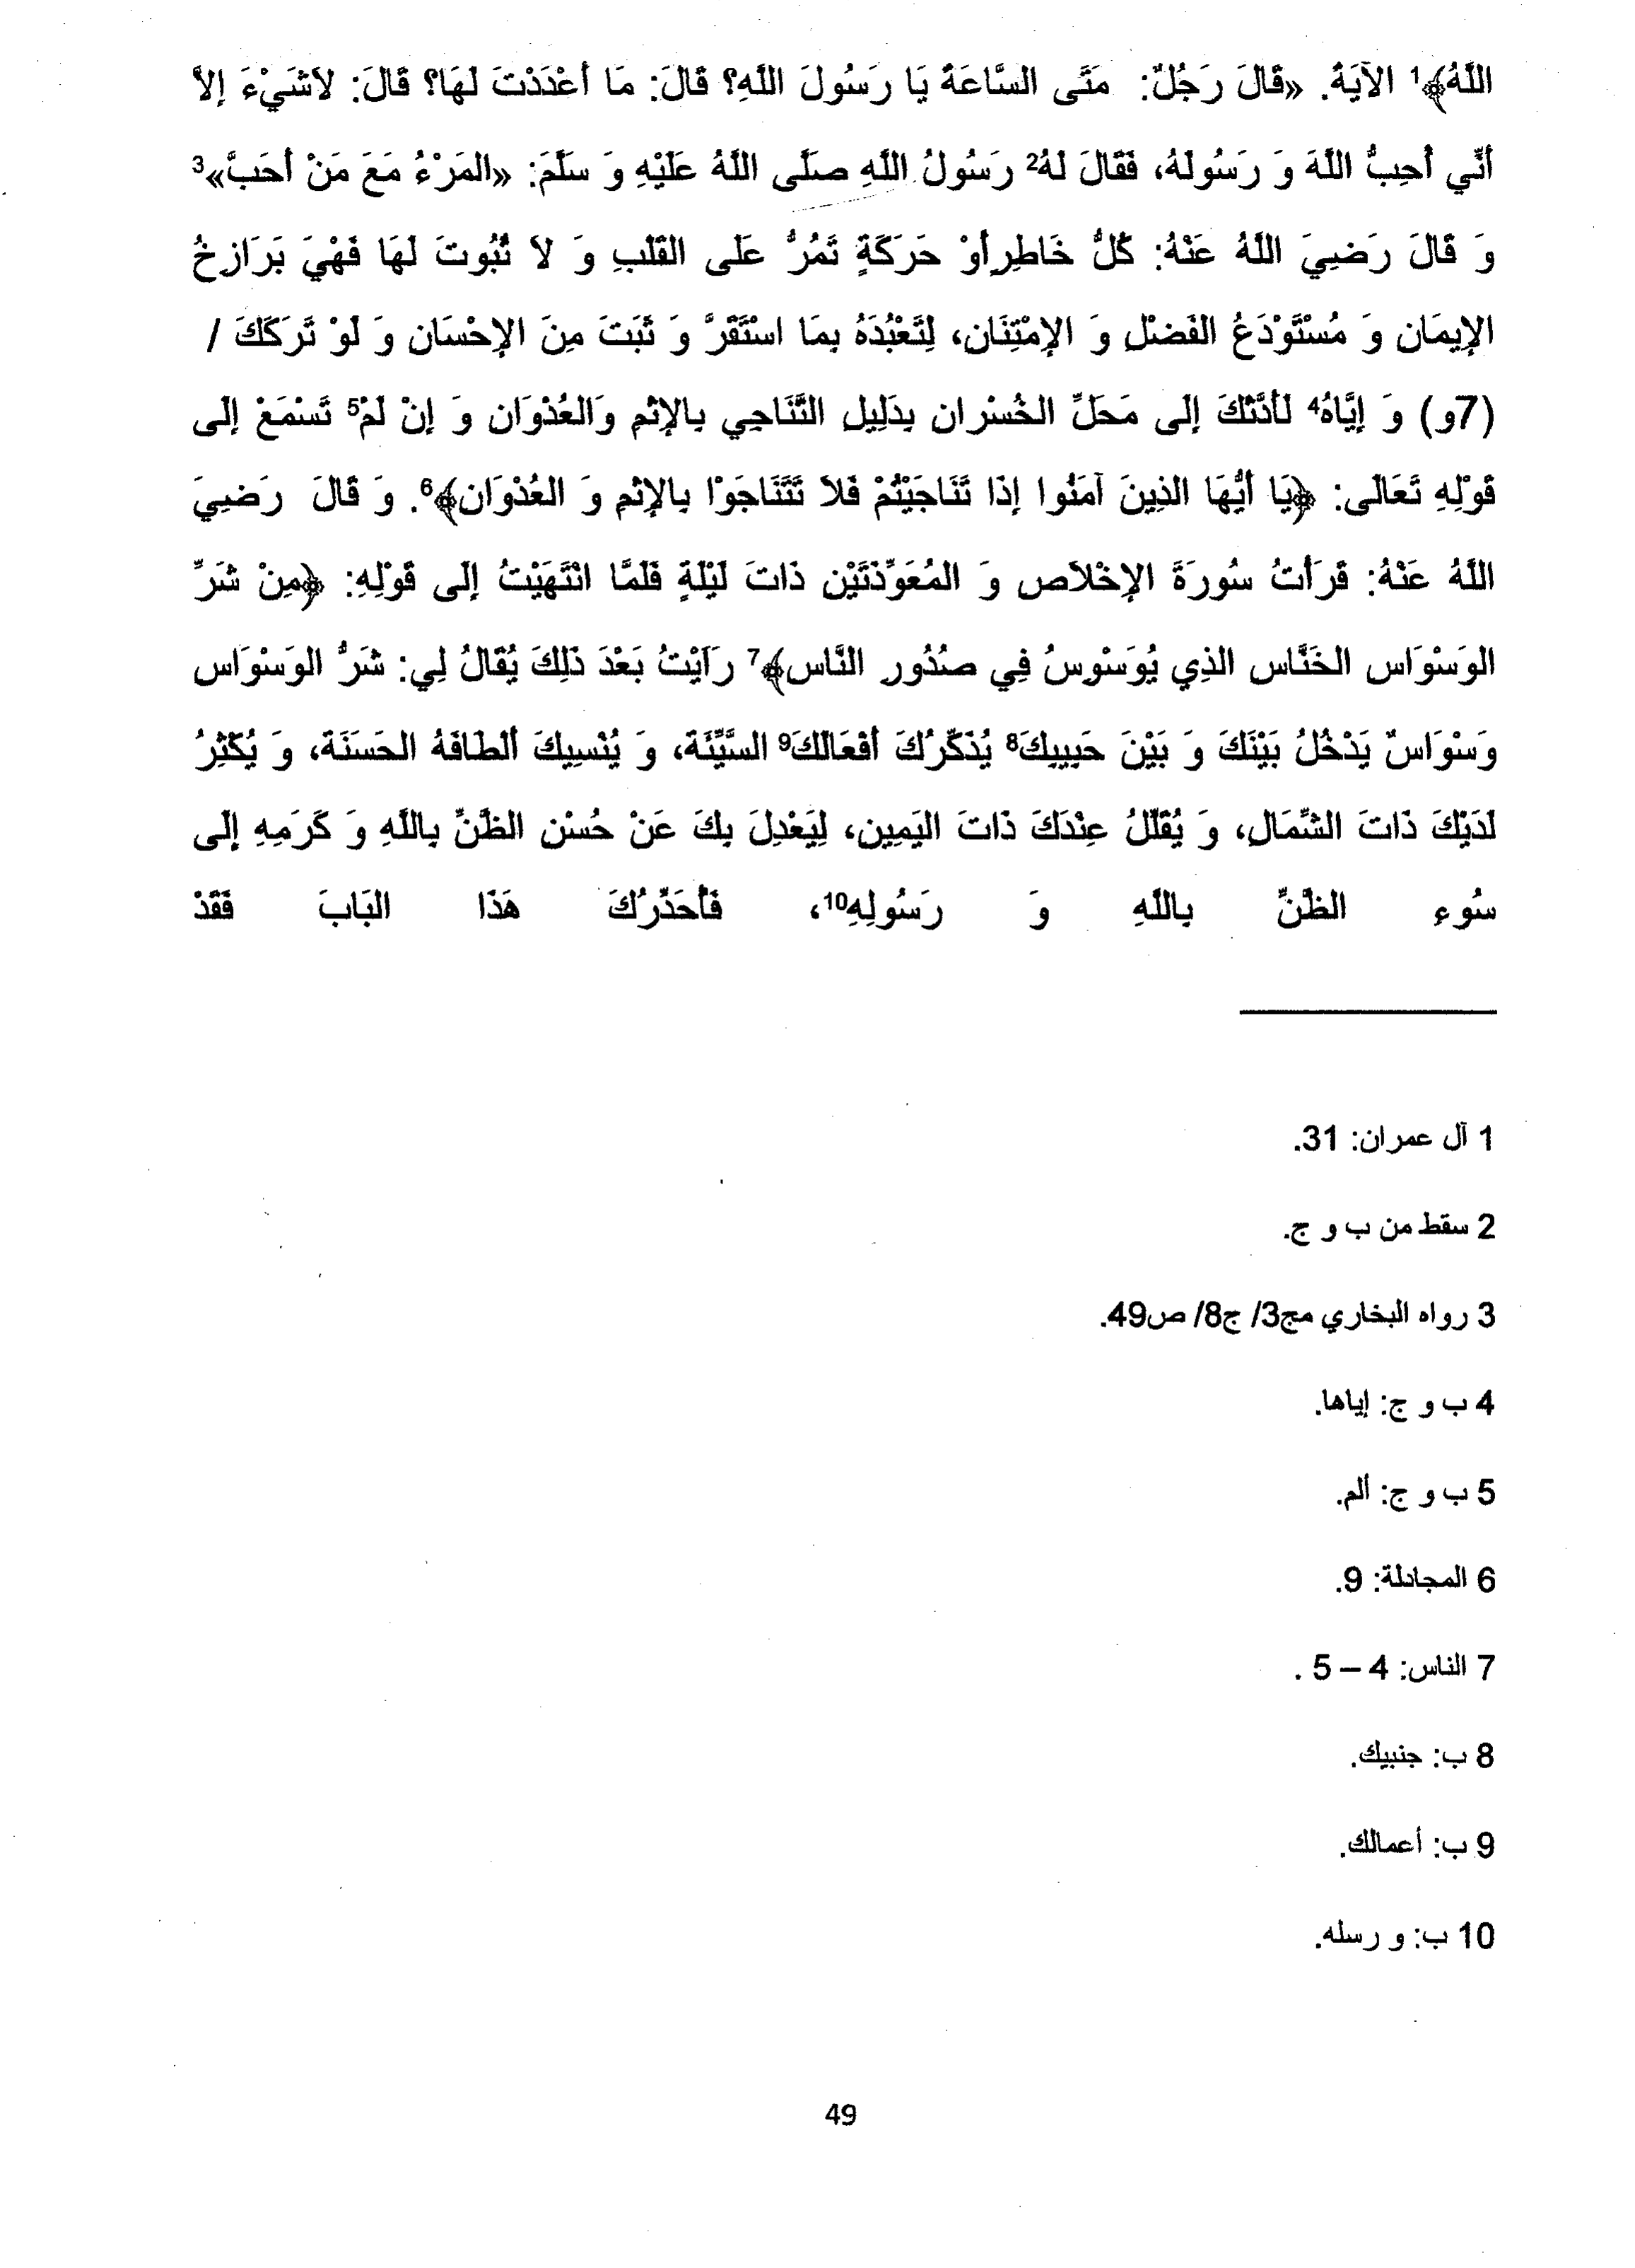 اللَّهُ﴾1 الآيَةَ. «قَالَ رَجُلٌ: مَتَى السَّاعَةُ يَا رَسُولَ اللَّهِ؟ قَالَ: مَا أَعْدَدْتَ لَهَا؟ قَالَ: لاَشَيْءَ إِلاَّ
أَنِّي أُحِبُّ اللَّهَ وَ رَسُولَهُ، فَقَالَ لَهُ2 رَسُولُ اللَّهِ صَلَّى اللَّهُ عَلَيْهِ وَ سَلَّمَ: «المَرْءُ مَعَ مَنْ أَحَبَّ»3
وَ قَالَ رَضِيَ اللَّهُ عَنْهُ: كُلُّ خَاطِرٍأَوْ حَرَكَةٍ تَمُرُّ عَلَى القَلْبِ وَ لاَ ثُبُوتَ لَهَا فَهْيَ بَرَازِخُ
الإِيمَانِ وَ مُسْتَوْدَعُ الفَضْلِ وَ الإِمْتِنَانِ، لِتَعْبُدَهُ بِمَا اسْتَقَرَّ وَ ثَبَتَ مِنَ الإِحْسَانِ وَ لَوْ تَرَكَكَ /
(7و) وَ إِيَّاهُ4 لَأَدَّتْكَ إِلَى مَحَلِّ الخُسْرانِ بِدَلِيلِ التَّنَاجِي بِالإِثْمِ وَالعُدْوَانِ وَ إِنْ لَمْ5 تَسْمَعْ إِلَى
قَوْلِهِ تَعَالَى: ﴿يَا أَيُّهَا الَّذِينَ آمَنُوا إِذَا تَنَاجَيْتُمْ فَلاَ تَتَنَاجَوْا بِالإِثْمِ وَ العُدْوَانِ﴾6. وَ قَالَ رَضِيَ
اللَّهُ عَنْهُ: قَرَأْتُ سُورَةَ الإِخْلاَصِ وَ المُعَوِّذَتَيْنِ ذَاتَ لَيْلَةٍ فَلَمَّا انْتَهَيْتُ إِلَى قَوْلِهِ: ﴿مِنْ شَرِّ
الوَسْوَاسِ الخَنَّاسِ الَّذِي يُوَسْوِسُ فِي صُدُورِ النَّاسِ﴾7 رَأَيْتُ بَعْدَ ذَلِكَ يُقَالُ لِي: شَرُّ الوَسْوَاسِ
وَسْوَاسٌ يَدْخُلُ بَيْنَكَ وَ بَيْنَ حَبِيبِكَ8 يُذَكِّرُكَ أَفْعَالَكَ9 السَّيِّئَةَ، وَ يُنْسِيكَ أَلْطَافَهُ الحَسَنَةَ، وَ يُكْثِرُ
لَدَيْكَ ذَاتَ الشِّمَالِ، وَ يُقَلِّلُ عِنْدَكَ ذَاتَ اليَمِينِ، لِيَعْدِلَ بِكَ عَنْ حُسْنِ الظَّنِّ بِاللَّهِ وَ كَرَمِهِ إِلَى
سُوءِ الظَّنِّ بِاللَّهِ وَ رَسُولِهِ10، فَأُحَذِّرُكَ هَذَا البَابَ فَقَدْ
1 آل عمران: 31.
2 سقط من ب و ج.
3 رواه البخاري مج3/ ج8/ ص49.
4 ب و ج: إياها.
5 ب و ج: ألم.
6 المجادلة: 9.
7 الناس: 4 – 5 .
8 ب: جنبيك.
9 ب: أعمالك.
10 ب: و رسله.
49